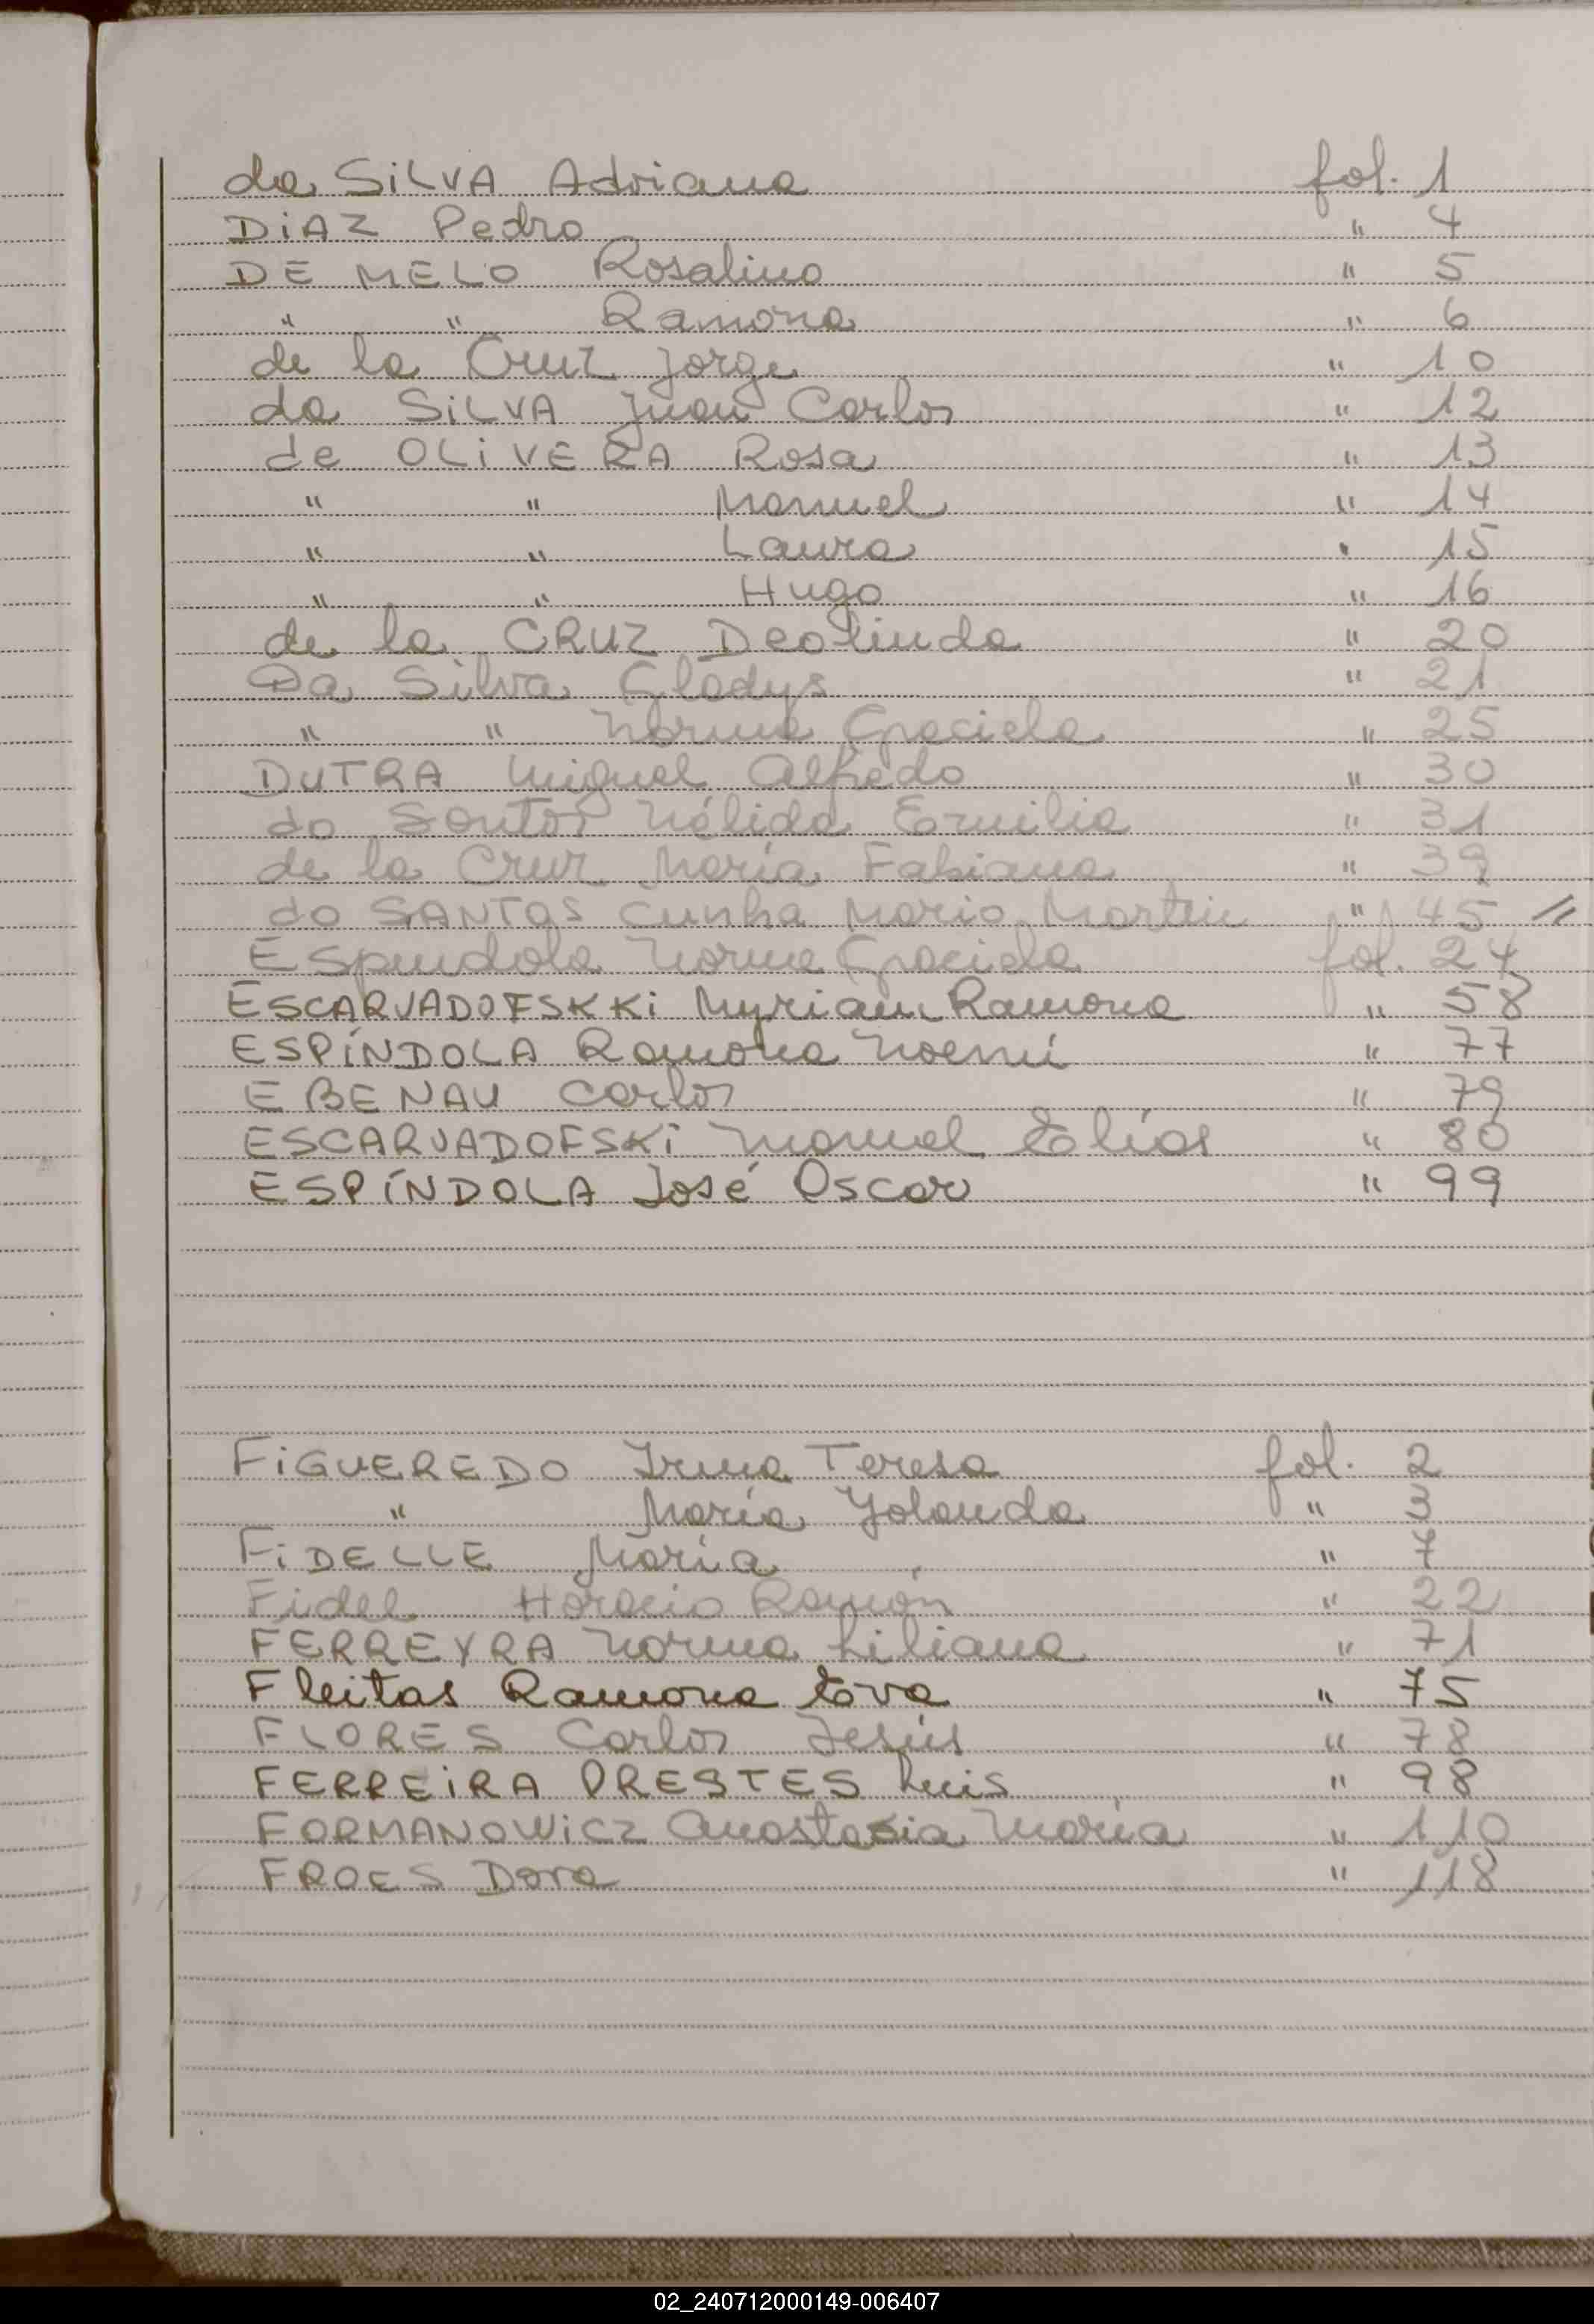 da SiLVA Adriana fol. 1
DiAZ Pedro " 4
DE MELO Rosalino " 5
" " Ramona " 6
de la Cruz Jorge " 10
da SiLVA Juan Carlos " 12
de OLiVERA Rosa " 13
" " Manuel " 14
" " Laura " 15
" " Hugo " 16
de la CRUZ Deolinda " 20
Da Silva Gladys " 21
" " Norma Graciela " 25
DUTRA Miguel Alfredo " 30
do Santos Nélida Ermilia " 31
de la Cruz María Fabiana " 39
do SANTOS Cunha Mario Martin " 45 //
Espindola Norma Graciela fol. 24
ESCARVADOFSKKi Myriam Ramona " 58
ESPÍNDOLA Ramona Noemí " 77
EBENAU Carlos " 79
ESCARVADOFSKi Manuel Elías " 80
ESPÍNDOLA José Oscar " 99
FiGUEREDO Irma Teresa fol. 2
" María Yolanda " 3
FiDELLE María " 7
Fidel Horacio Ramón " 22
FERREYRA Norma Liliana " 71
Fleitas Ramona Eva " 75
FLORES Carlos Jesús " 78
FERREiRA PRESTES Luis " 98
FORMANOWiCZ Anastasia María " 110
FROES Dora " 118
02_240712000149-006407